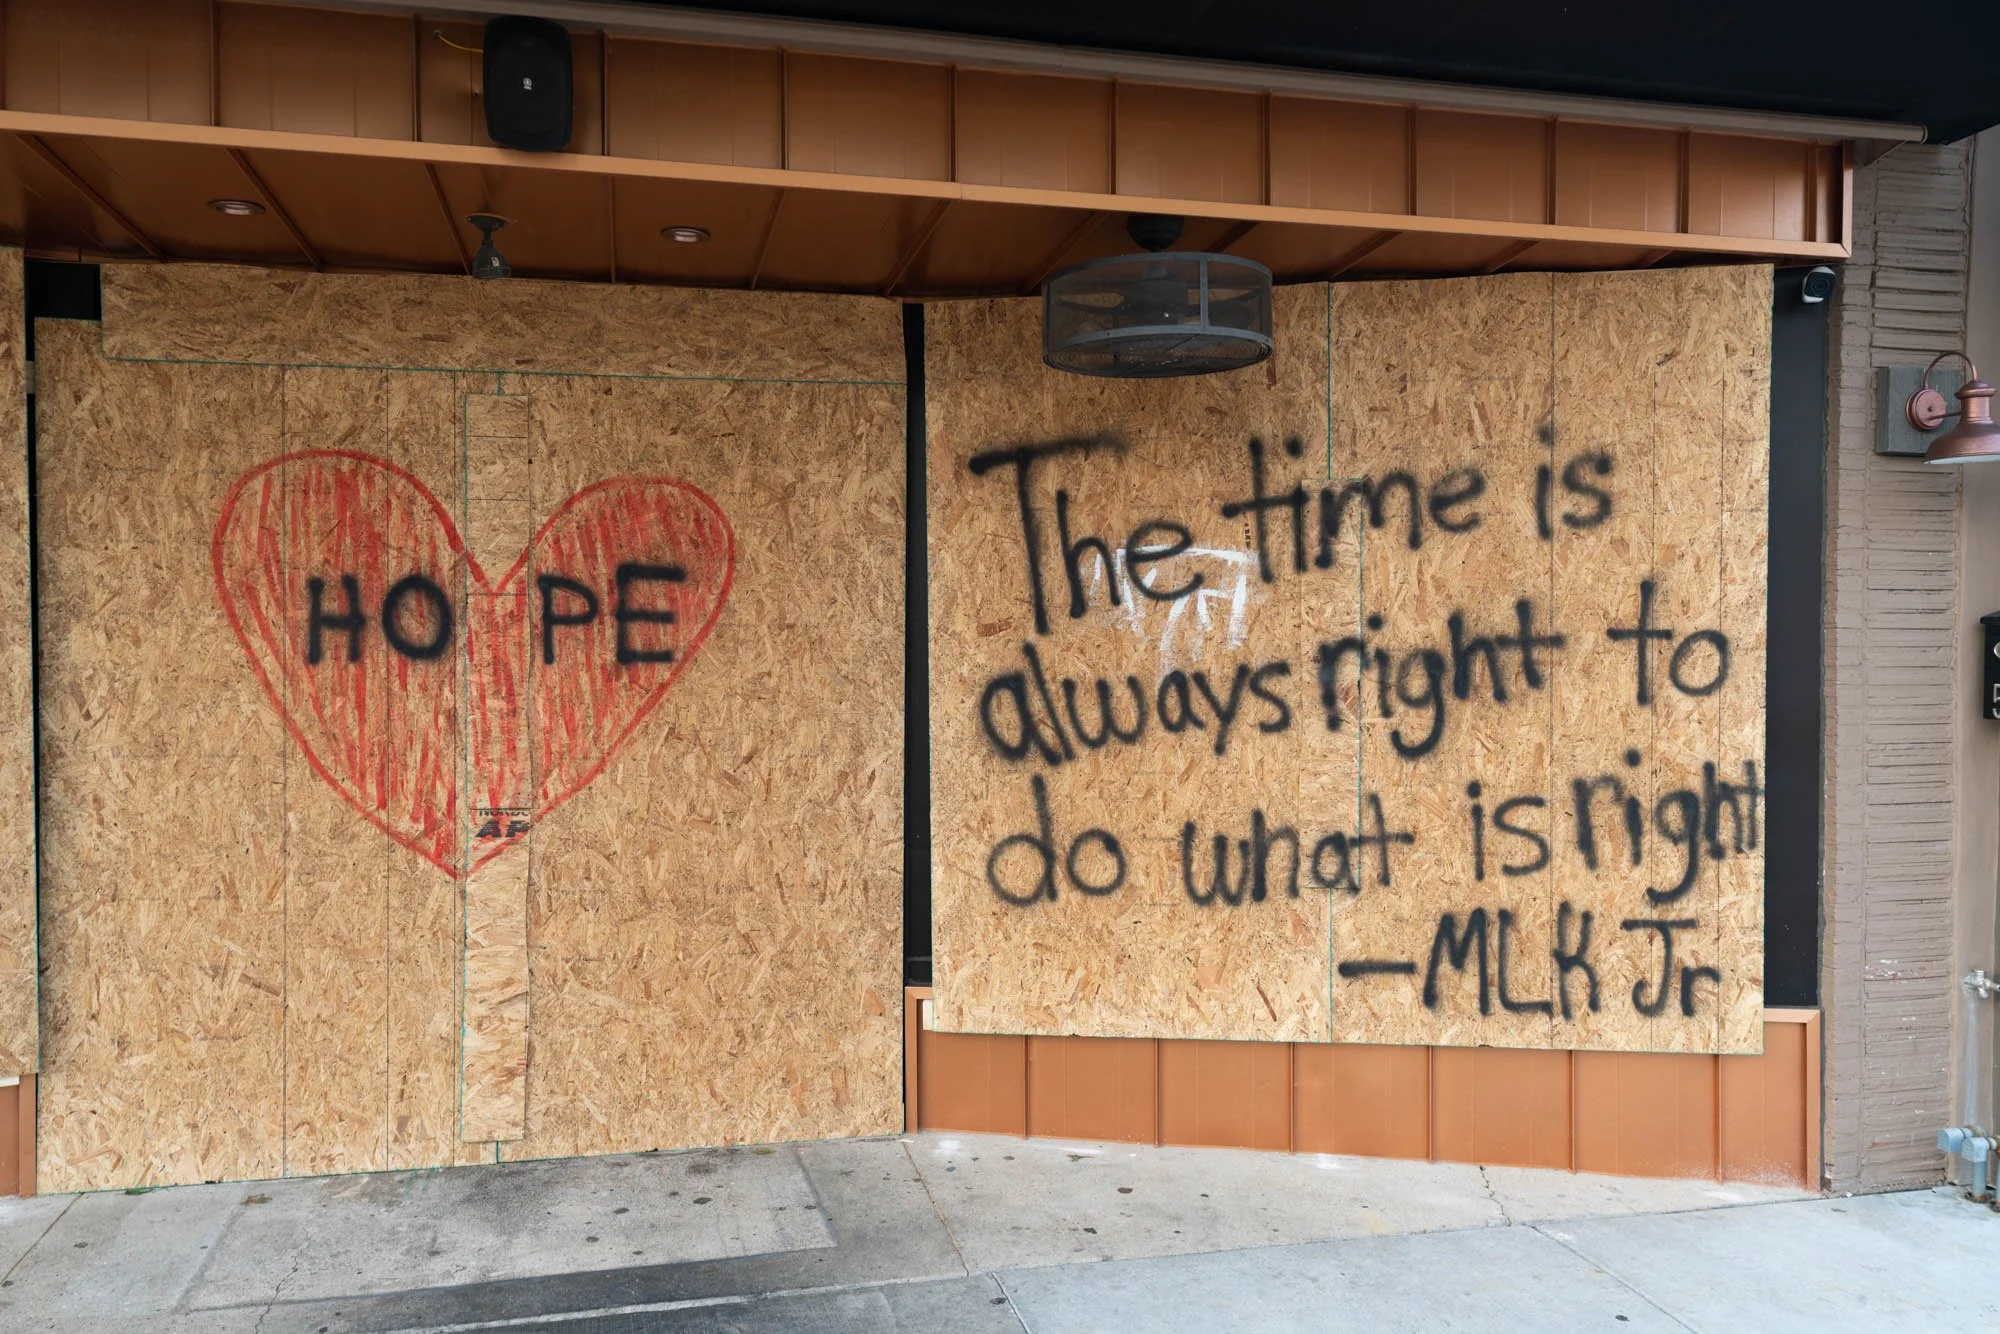 HOPE
AP
The time is
always right to
do what is right
-MLK Jr
5